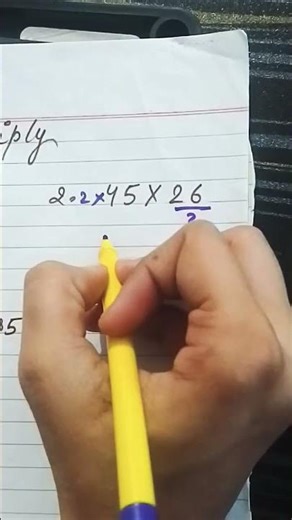 iply
2·2×45×26
2
35